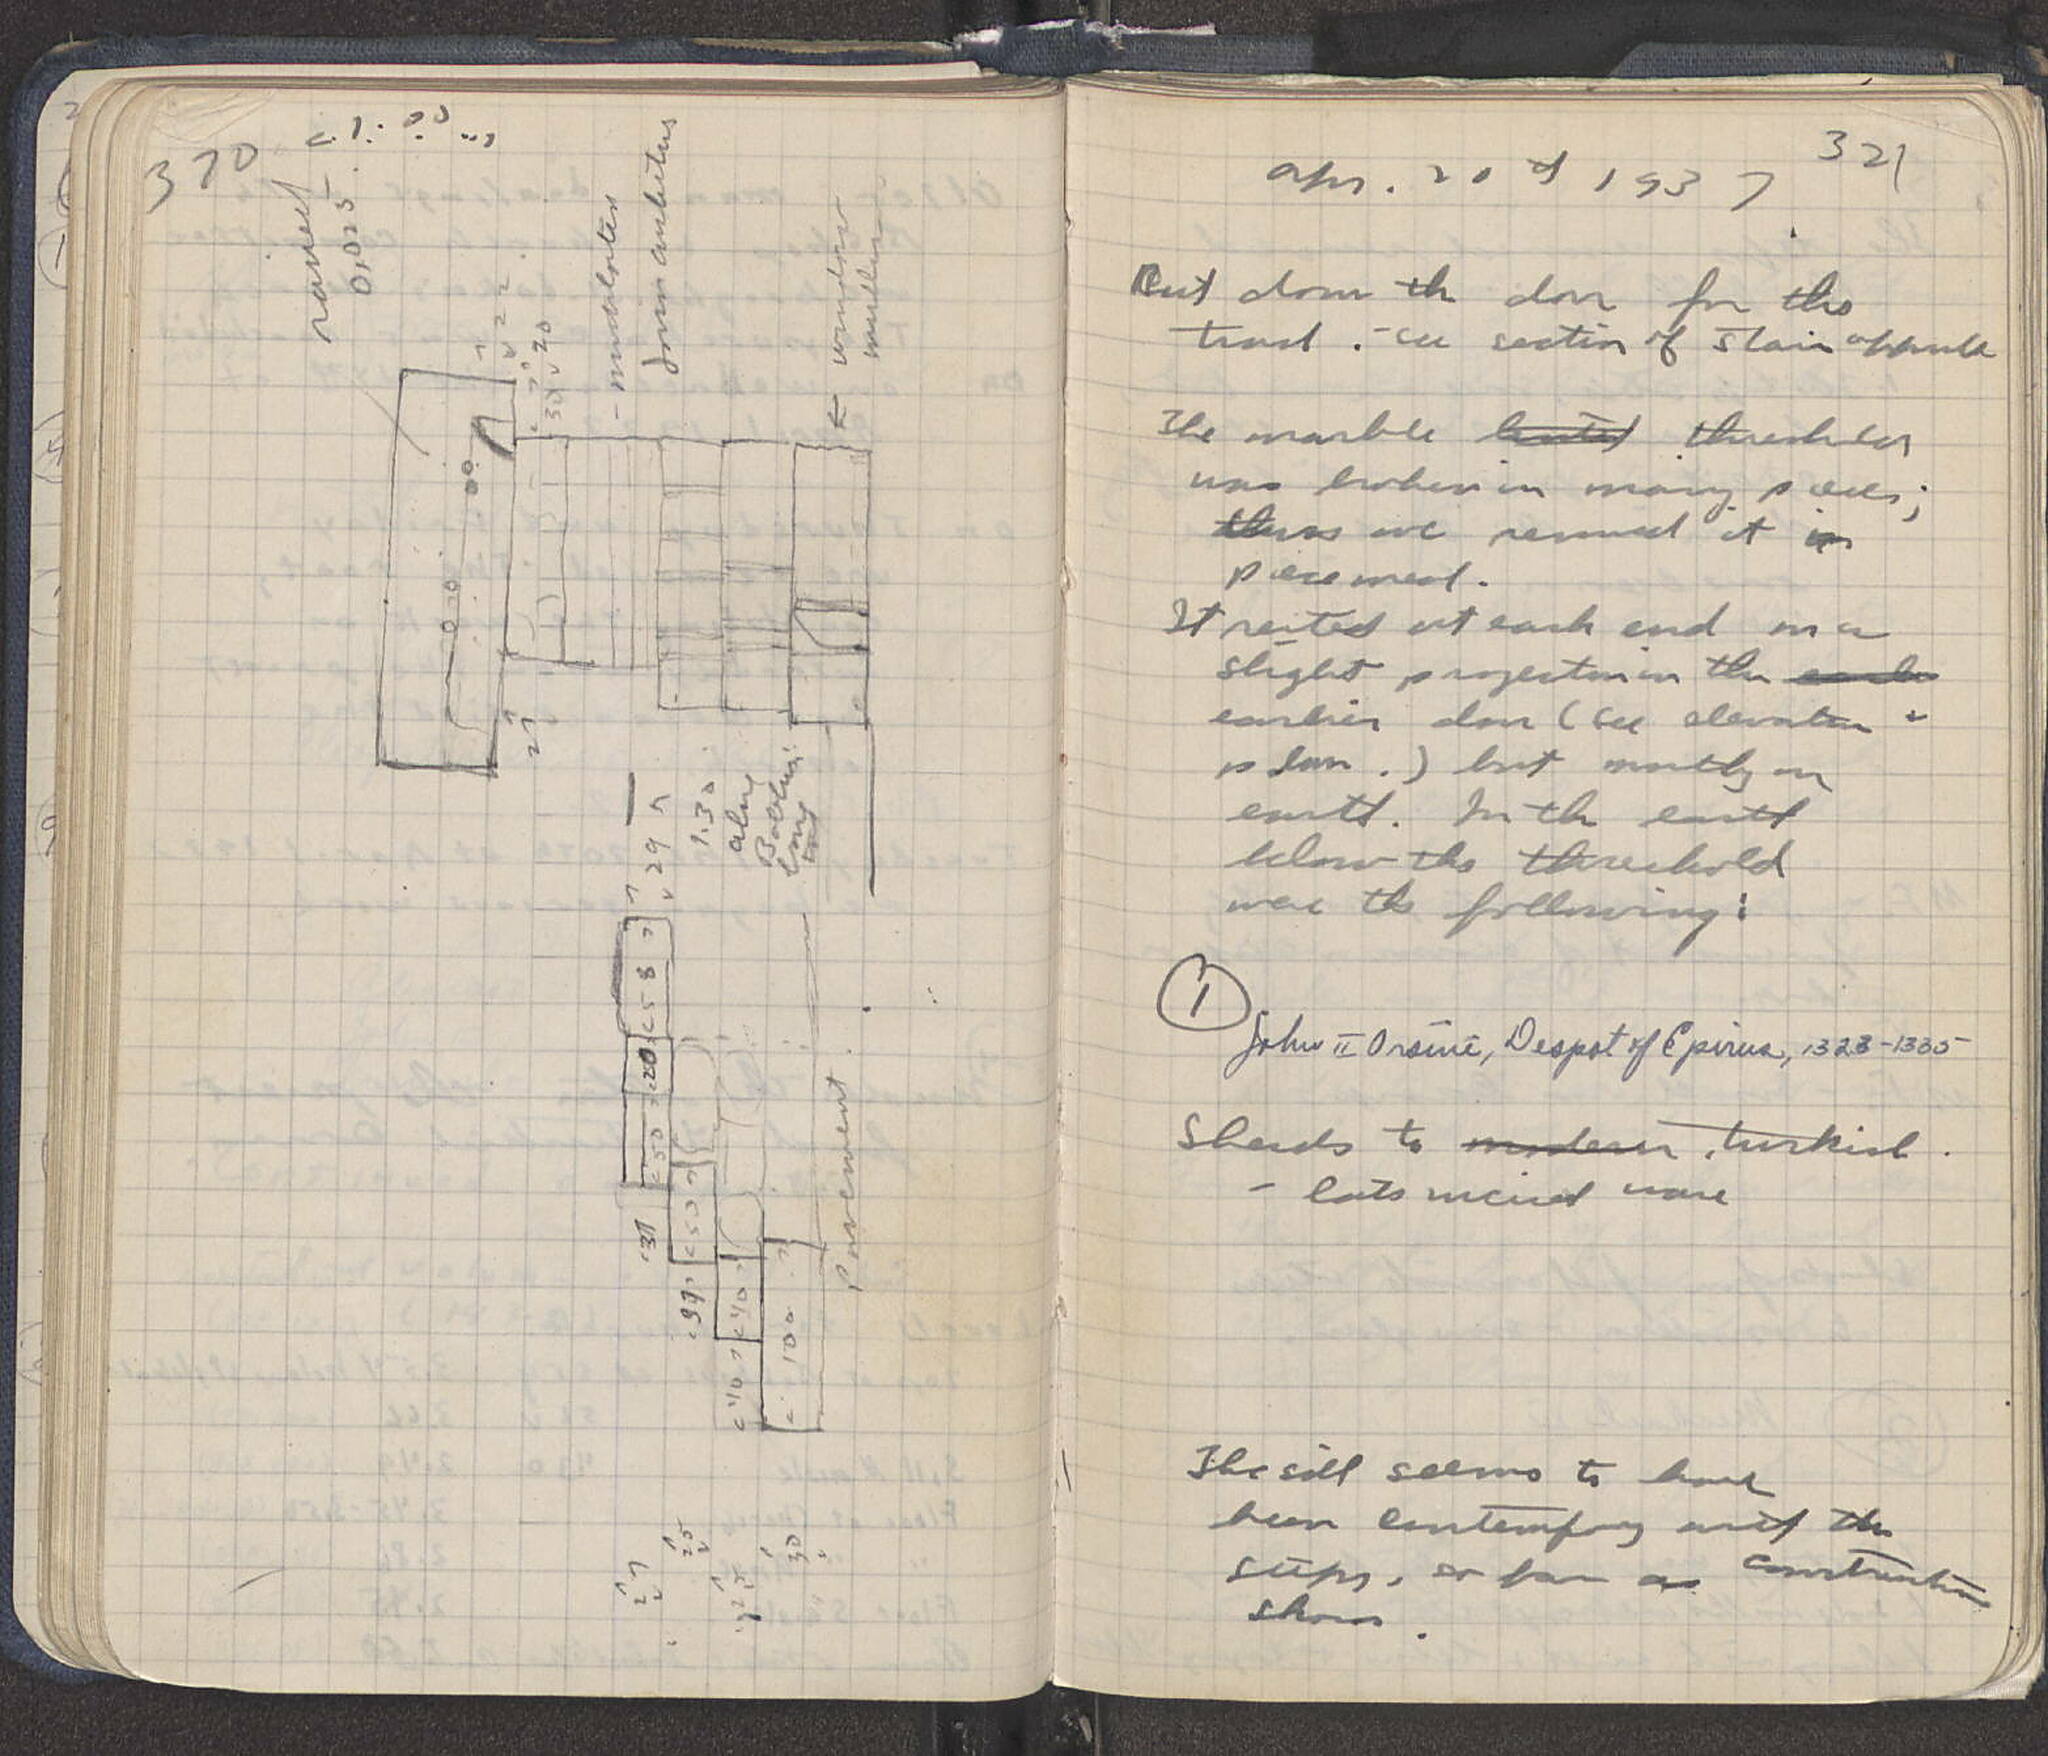 320
raveel
0,025
22
20
- mullions
from ambitus
← window
mullion
27
29
1.30
along
Bottom
long
58
20
50
31
50
99
40
40
100
Pavement
27
25
25
30
321
Apr. 20th 1937
Cut down the door for the
tread. - see section of stair opposite
The marble lintel threshold
was broken in many pieces;
thus we removed it in
piecemeal.
It rested at each end on a
slight projection in the earlier
earlier door (see elevation &
plan.) but mostly on
earth. In the earth
below the threshold
were the following:
1
John II Orsini, Despot of Epirus, 1323-1335
Sherds to modern turkish.
- late incised ware
The sill seems to have
been contemporary with the
steps, so far as construction
shows.